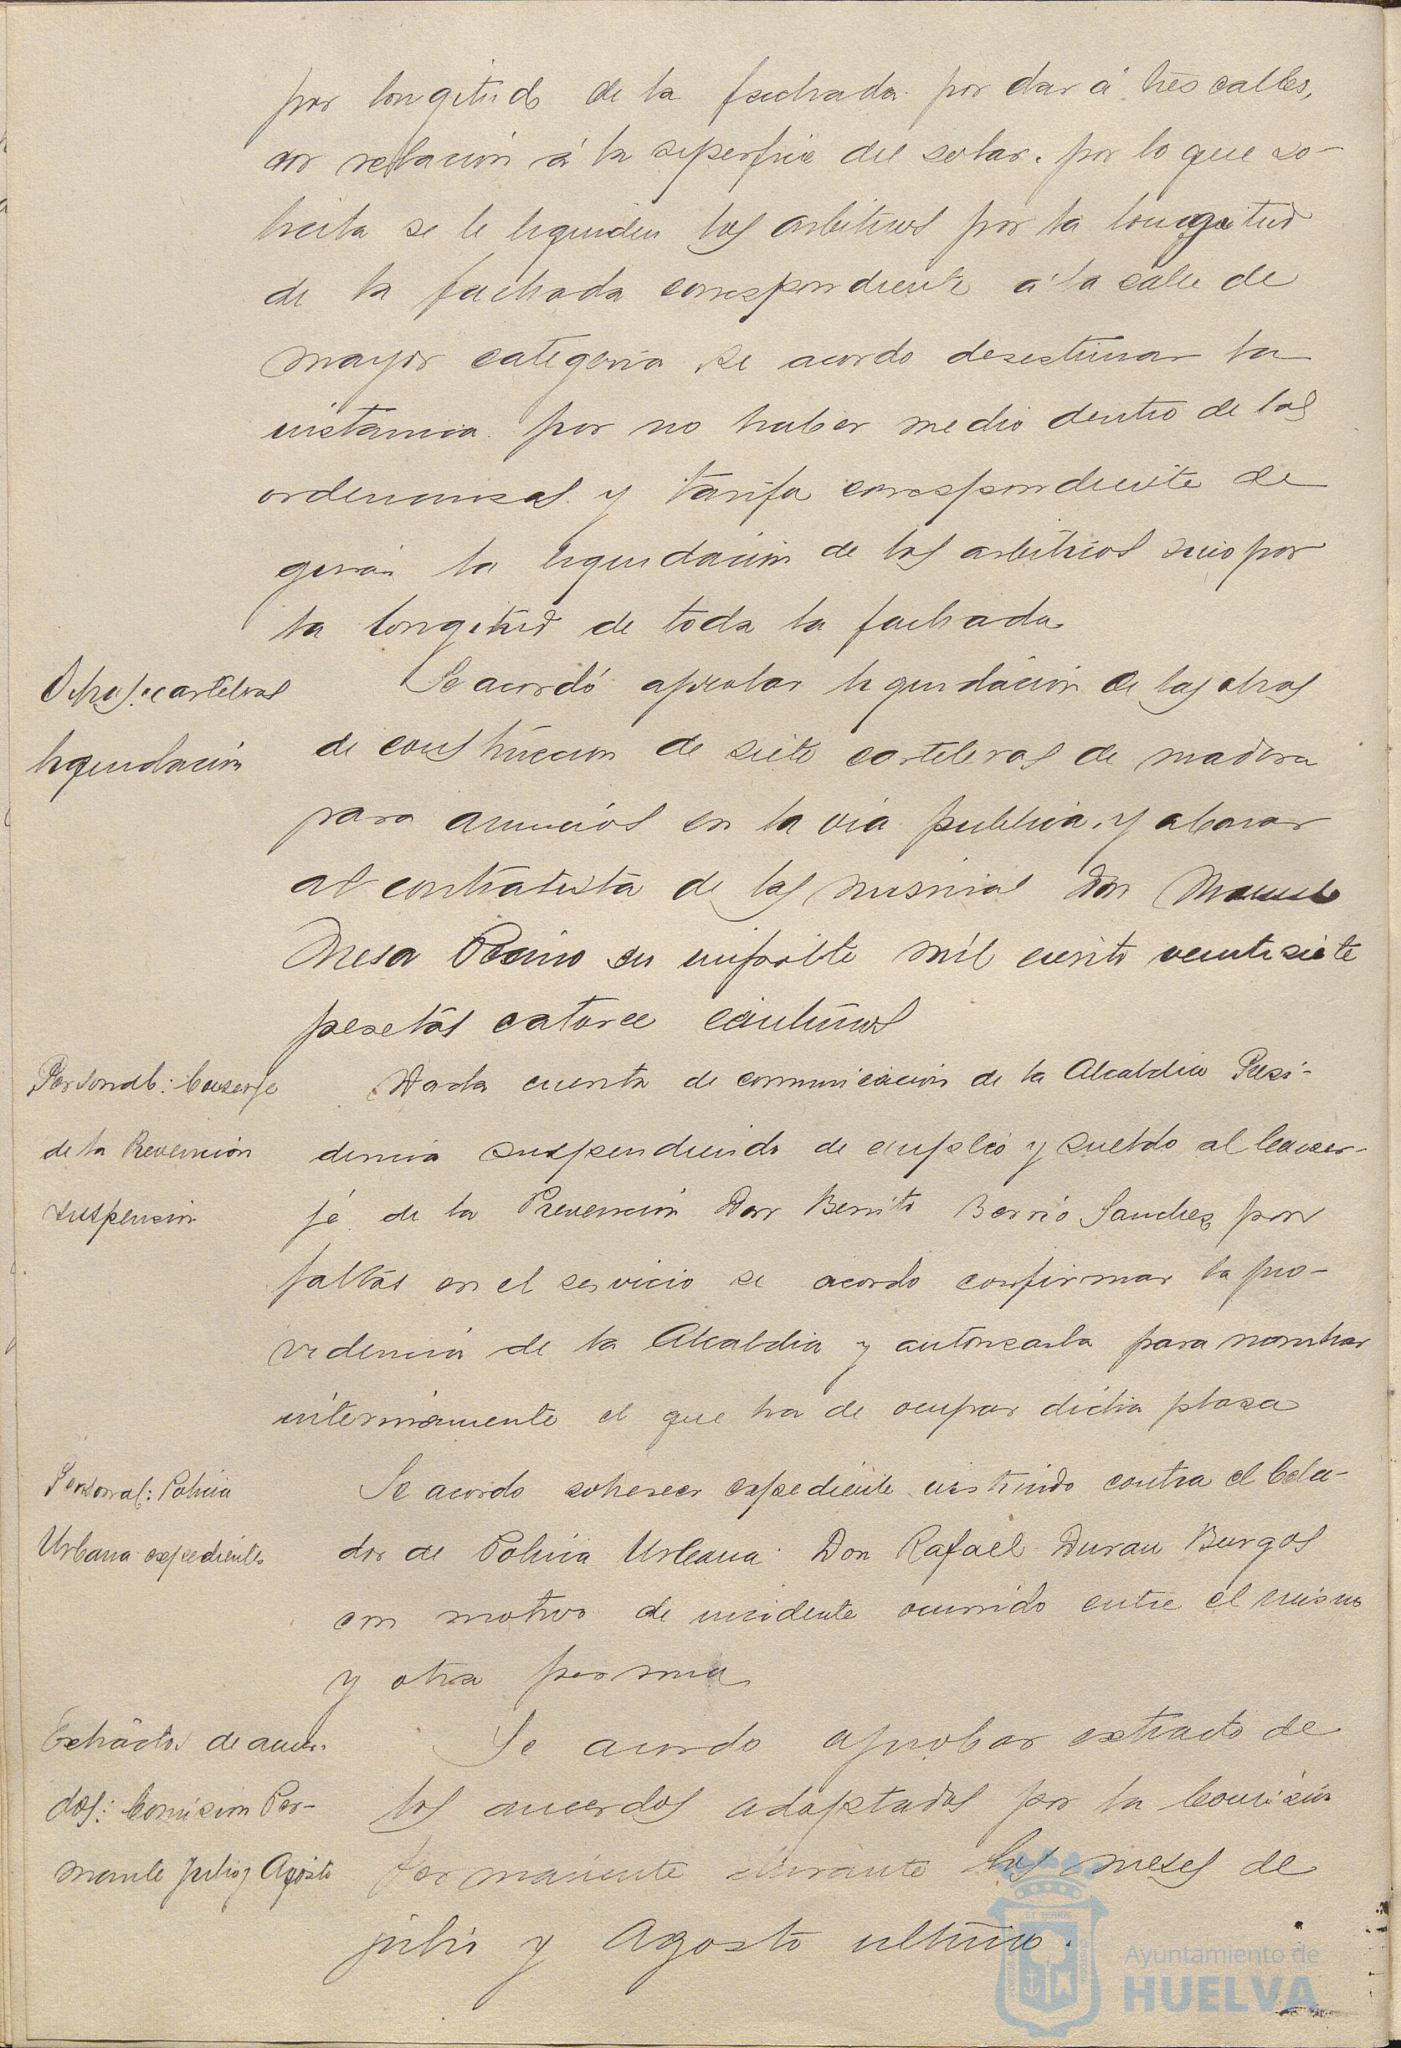 por longitud de la fachada por dar á tres calles,
con relación á la superficie del solar. por lo que so-
licita se le liquiden los arbitrios por la longitud
de la fachada correspondiente á la calle de
mayor categoria se acordo desestimar la
instancia por no haber medio dentro de las
ordenanzas y tarifa correspondiente de
girar la liquidación de los arbitrios sino por
la longitud de toda la fachada
Obras: carteleras
liquidación
Se acordó aprobar liquidación de las obras
de construccion de siete carteleras de madera
para anuncios en la via publica, y abonar
al contratista de las mismas Don Manuel
Mesa su importe mil ciento veintisiete
pesetas catorce centimos
Personal: Conserje
de la Prevención
suspension
Dada cuenta de comunicación de la Alcaldia Presi-
dencia suspendiendo de empleo y sueldo al Conser-
je de la Prevención Don Benito Berrio Sanchez por
faltas en el servicio se acordo confirmar la pro-
videncia de la Alcaldia y autorizarla para nombrar
interinamente el que ha de ocupar dicha plaza
Personal: Policia
Urbana expediente
Se acordo sobreseer expediente instruido contra el Cela-
dor de Policia Urbana Don Rafael Duran Burgos
con motivo de incidente ocurrido entre el mismo
y otra persona
Extracto de acuer-
dos: Comision Per-
manente Julio y Agosto
Se acordo aprobar extracto de
los acuerdos adoptados por la Comisión
Permanente durante los meses de
julio y Agosto ultimo.
Ayuntamiento de
HUELVA